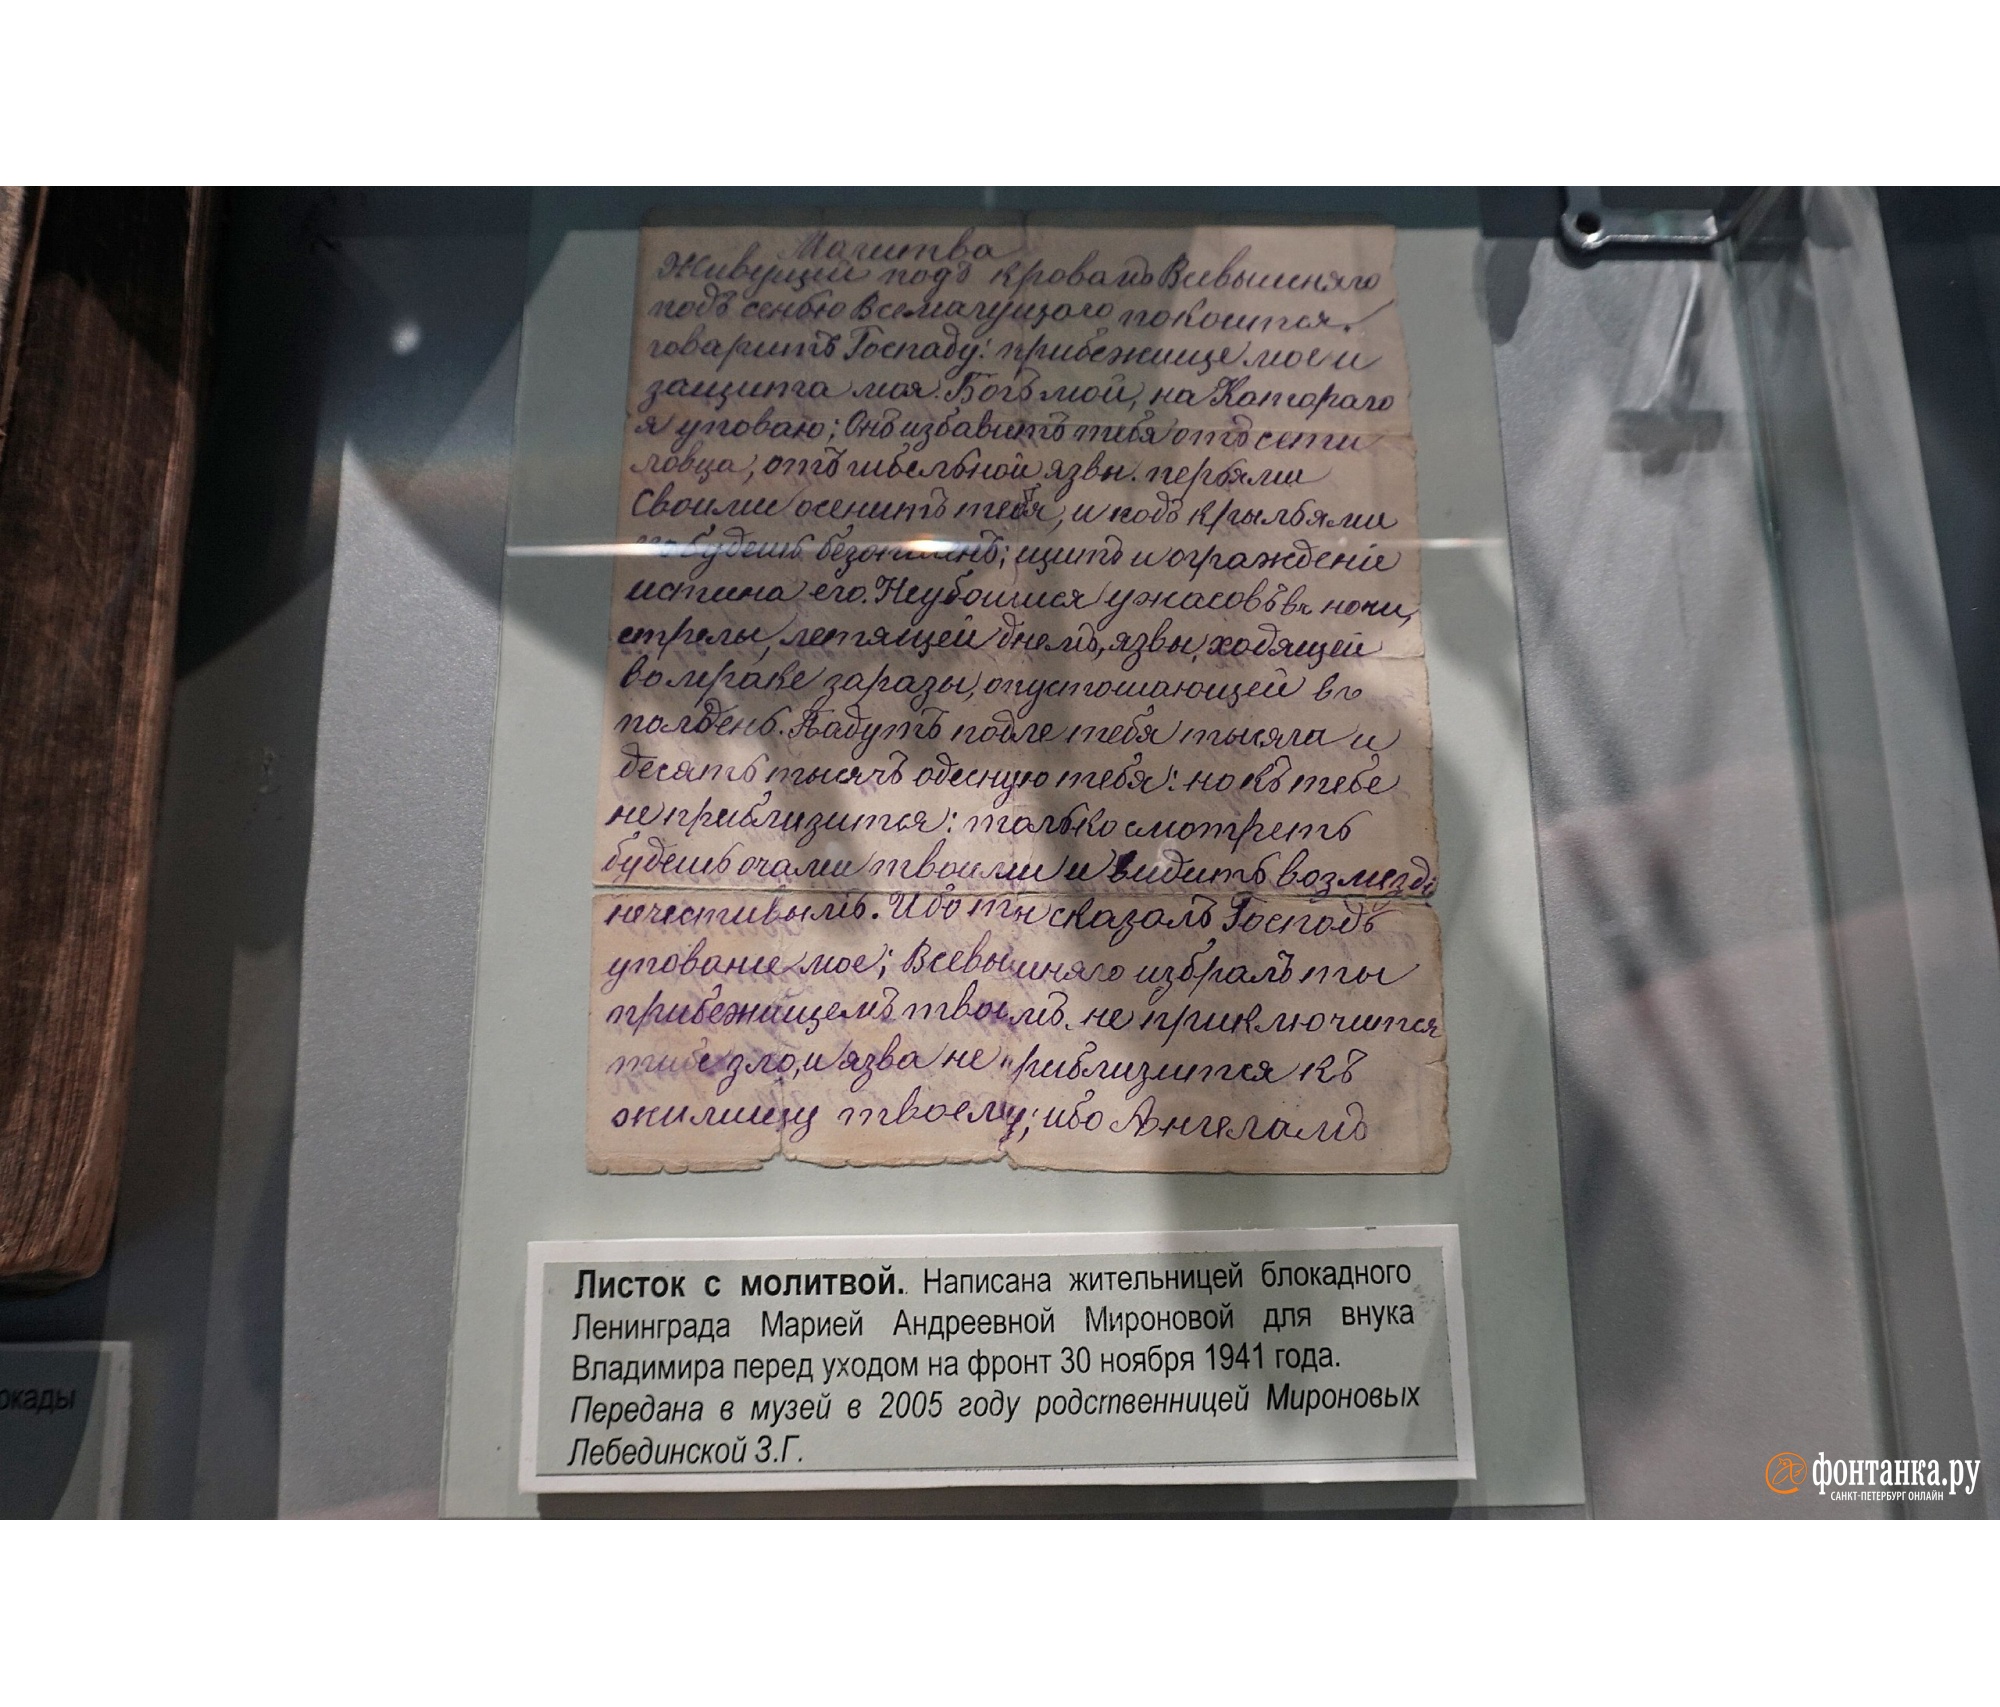 Малитва
Живущей подъ кровамъ Всевышняго
подъ сенью Всемагущаго покоится.
говаритъ Госпаду: прибежище мое и
защита моя. Богъ мой, на Катораго
я уповаю; Онъ избавитъ тебя отъ сети
ловца, отъ гибельной язвы. перьями
Своими осенитъ тебя, и подъ крыльями
его будешь безопасенъ; щитъ и ограждение
истина его. Неубоишся ужасовъ въ ночи,
стрелы, летящей днемъ, язвы, ходящей
во мраке заразы, опустошающей въ
полдень. Падутъ подле тебя тысяча и
десять тысячъ одесную тебя: но къ тебе
не приблизится: только смотреть
будешь очами твоими и видить возмездие
нечестивымъ. Ибо ты сказалъ Господь
упование мое; Всевышняго избралъ ты
прибежищемъ твоимъ. не приключится
тибе зло, и язва не приблизится къ
жилищу твоему; ибо Ангеламъ
Листок с молитвой. Написана жительницей блокадного
Ленинграда Марией Андреевной Мироновой для внука
Владимира перед уходом на фронт 30 ноября 1941 года.
Передана в музей в 2005 году родственницей Мироновых
Лебединской З.Г.
окады
фонтанка.ру
САНКТ-ПЕТЕРБУРГ ОНЛАЙН